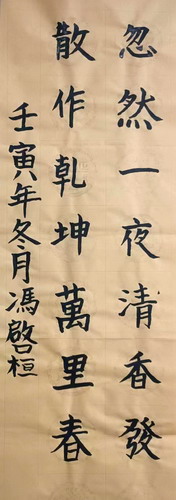 忽然一夜清香發
散作乾坤萬里春
壬寅年冬月馮啓桓